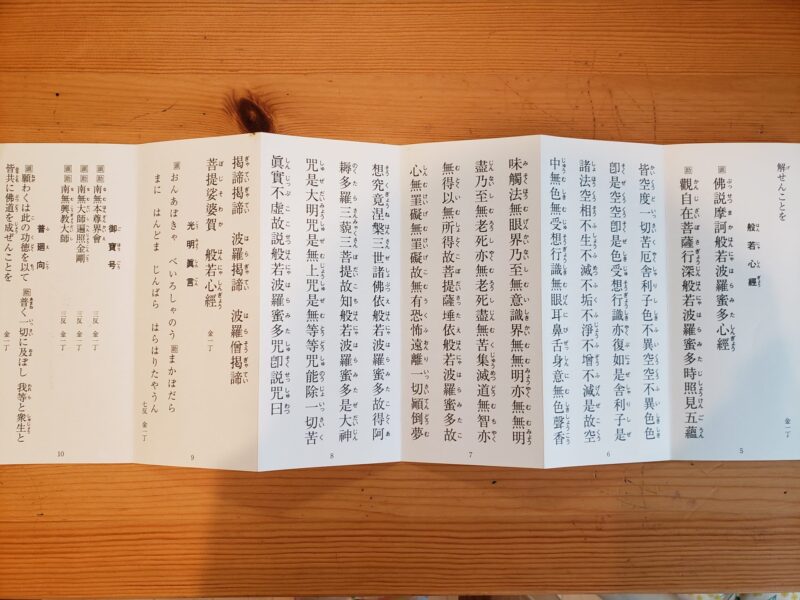 解せんことを 金一丁
般若心經
佛説摩訶般若波羅蜜多心經
觀自在菩薩行深般若波羅蜜多時照見五蘊
5
皆空度一切苦厄舍利子色不異空空不異色色
卽是空空卽是色受想行識亦復如是舍利子是
諸法空相不生不滅不垢不淨不增不減是故空
中無色無受想行識無眼耳鼻舌身意無色聲香
6
味觸法無眼界乃至無意識界無無明亦無無明
盡乃至無老死亦無老死盡無苦集滅道無智亦
無得以無所得故菩提薩埵依般若波羅蜜多故
心無罣礙無罣礙故無有恐怖遠離一切顚倒夢
7
想究竟涅槃三世諸佛依般若波羅蜜多故得阿
耨多羅三藐三菩提故知般若波羅蜜多是大神
咒是大明咒是無上咒是無等等咒能除一切苦
眞實不虛故說般若波羅蜜多咒卽説咒曰
8
揭諦揭諦 波羅揭諦 波羅僧揭諦
菩提娑婆賀 般若心經 金一丁
光明眞言
おんあぼきゃ べいろしゃのう まかぼだら
まに はんどま じんばら はらはりたやうん
七反 金一丁
9
御寶号
南無本尊界會 三反 金一丁
南無大師遍照金剛 三反 金一丁
南無興教大師 三反 金一丁
普廻向
願わくは此の功徳を以て 普く一切に及ぼし 我等と衆生と
皆共に佛道を成ぜんことを 金一丁
10